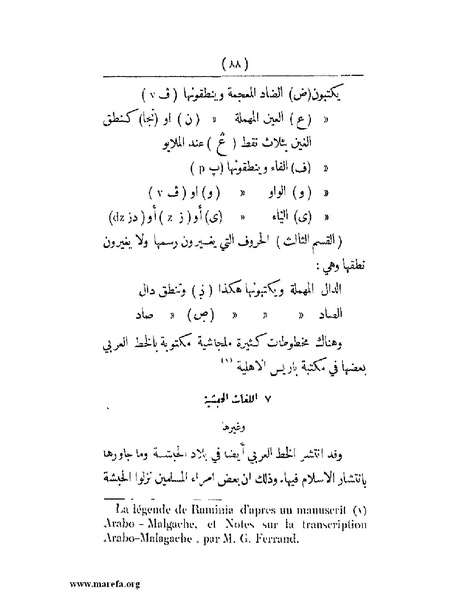 ( ٨٨ )
يكتبون (ض) الضاد المعجمة وينطقونها ( ڤ v )
« ( ع ) العين المهملة « ( ن ) او (نجا) كنطق
الغين بثلاث نقط ( ڠ ) عند الملايو
« (ف) الفاء وينطقونها (پ p )
« ( و ) الواو « ( و) او ( ڤ v )
« (ى) الياء « (ى) أو ( ز z ) أو ( دز dz)
( القسم الثالث ) الحروف التي يغيرون رسمها ولا يغيرون
نطقها وهي :
الدال المهملة ويكتبونها هكذا ( ) وتنطق دال
الصاد « « « ( ) « صاد
وهناك مخطوطات كثيرة ملجاشية مكتوبة بالخط العربي
بعضها في مكتبة باريس الاهلية (١)
٧ اللغات الحبشية
وغيرها
وقد انتشر الخط العربي أيضا في بلاد الحبشة وما جاورها
بانتشار الاسلام فيها. وذلك ان بعض امراء المسلمين نزلوا الحبشة
(١) La légende de Raminia d'apres un manuscrit
Arabo - Malgache, et Notes sur la transcription
Arabo-Malagache , par M. G. Ferrand.
www.marefa.org